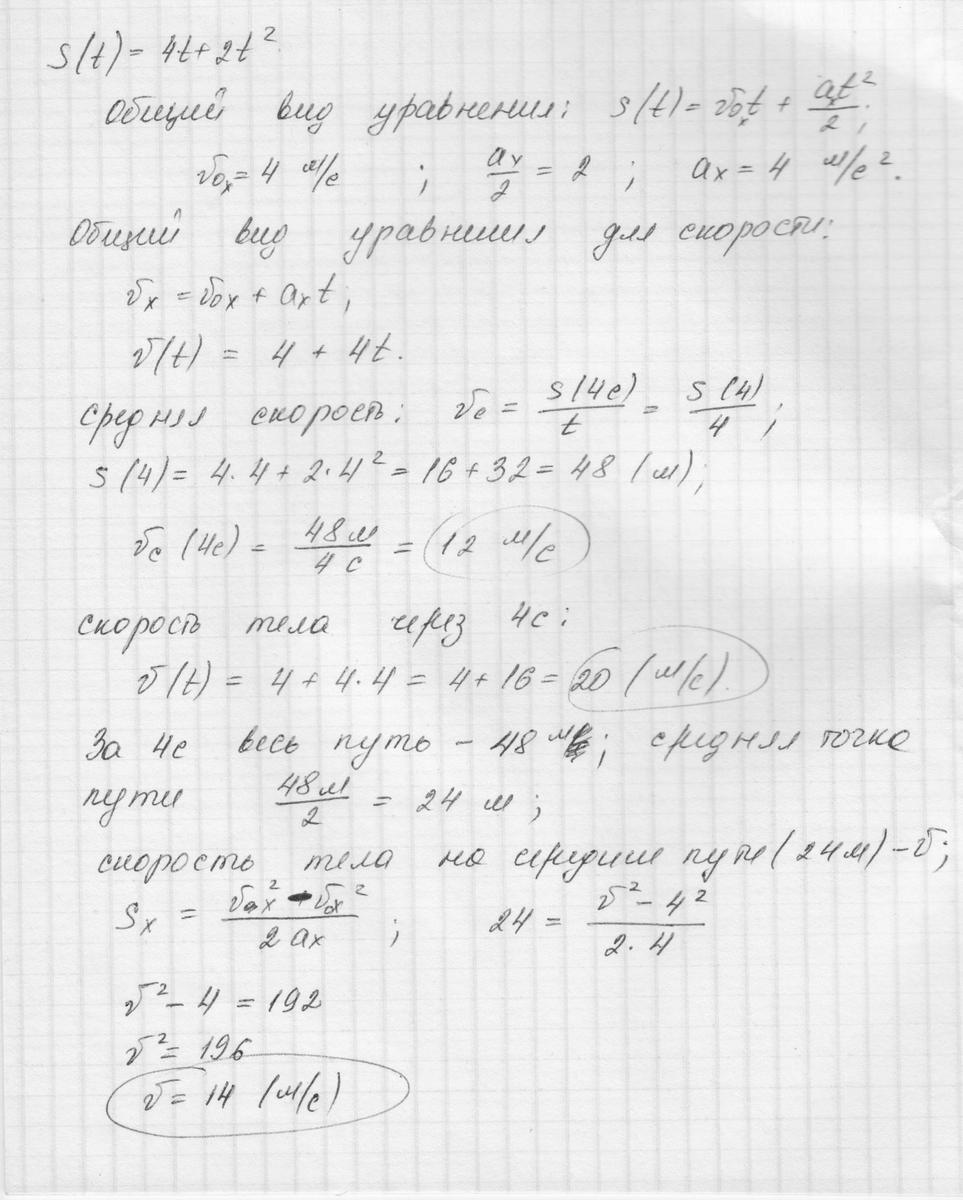 S(t) = 4t + 2t²
Общий вид уравнения: S(t) = v₀ₓt + aₓt²/2;
v₀ₓ = 4 м/с ; aₓ/2 = 2 ; aₓ = 4 м/с².
Общий вид уравнения для скорости:
vₓ = v₀ₓ + aₓt;
v(t) = 4 + 4t.
средняя скорость: v_c = S(4c)/t = S(4)/4;
S(4) = 4·4 + 2·4² = 16 + 32 = 48 (м);
v_c (4c) = 48м/4c = 12 м/с
скорость тела через 4с:
v(t) = 4 + 4·4 = 4 + 16 = 20 (м/с).
За 4с весь путь – 48 м; средняя точка
пути 48м/2 = 24 м;
скорость тела на середине пути (24м) – v;
Sₓ = vₓ² - v₀ₓ²/2aₓ ; 24 = v² - 4²/2·4
v² - 4 = 192
v² = 196
v = 14 (м/с)